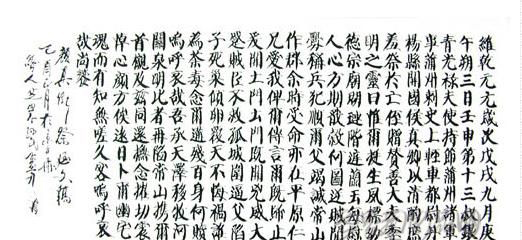 維乾元元年歲次戊戌九月庚
午朔三日壬申第十三叔銀
青光祿大夫使持節蒲州諸軍
事蒲州刺史上輕車都尉丹
楊縣開國侯真卿以清酌庶
羞祭於亡侄贈贊善大夫季
明之靈曰惟爾挺生夙標幼
德宗廟瑚璉階庭蘭玉每慰
人心方期戩穀何圖逆賊閒
釁稱兵犯順爾父竭誠常山
作郡余時受命亦在平原仁
兄愛我俾爾傳言爾既歸止
爰開土門土門既開兇威大
蹙賊臣不救孤城圍逼父陷
子死巢傾卵覆天不悔禍誰
為荼毒念爾遘殘百身何贖
嗚呼哀哉吾承天澤移牧河
關泉明比者再陷常山攜爾
首櫬及茲同還撫念摧切震
悼心顏方俟遠日卜爾幽宅
魂而有知無嗟久客嗚呼哀
哉尚饗
顏真卿祭侄文稿